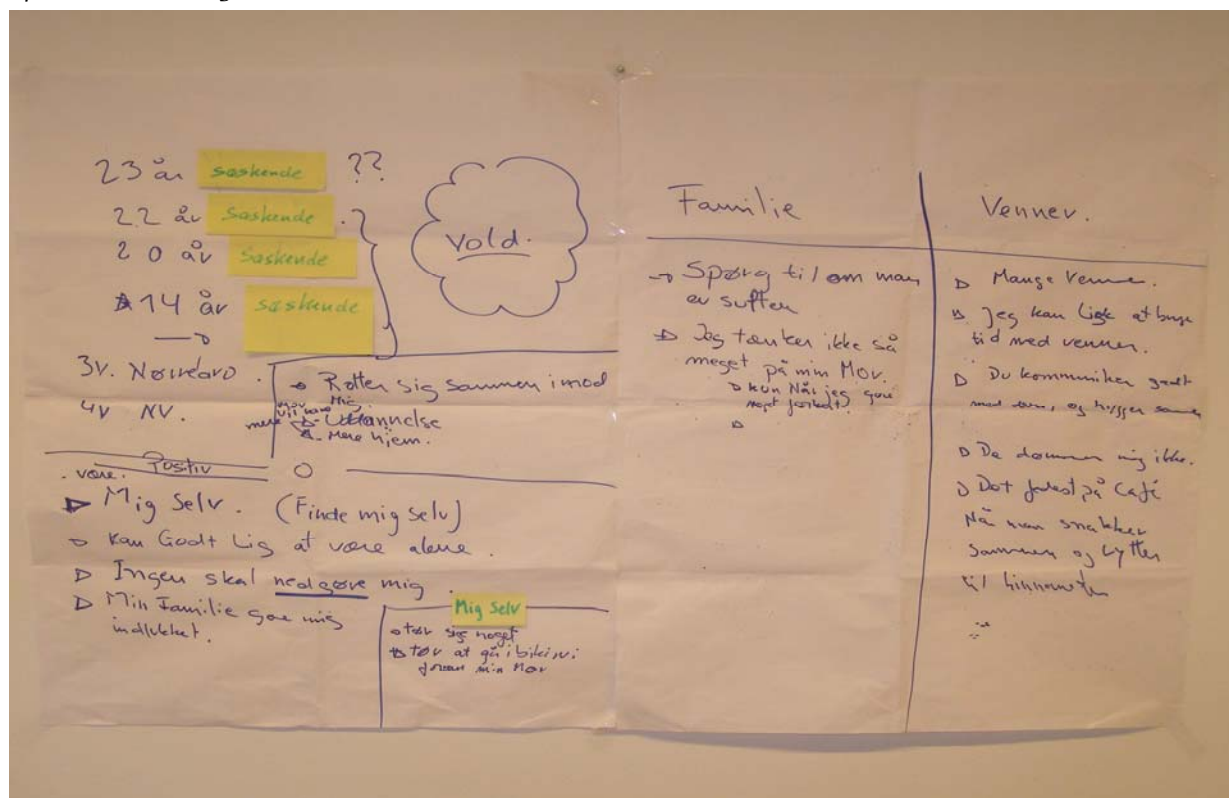 23 år søskende ??
22 år søskende
20 år søskende
14 år søskende
vold.
3v. Nørrebro.
4v NV.
Rotter sig sammen imod
Mig
mere
Mere hjem.
Positiv
være.
Mig Selv. (Finde mig selv)
Kan Godt Lig at være alene.
Ingen skal nedgøre mig.
Min Familie gøre mig
indlukket.
Mig Selv
tør sige noget
tør at gå i bikini
foran min Mor
Familie
Spørg til om man
er sulten
Jeg tænker ikke så
meget på min Mor.
kun Når jeg gøre
noget forkert.
Venner.
Mange Venner.
Jeg kan Lige at bruge
tid med venner.
Du kommuniker godt
med dem, og hygger
De dømmer mig ikke.
på Café
Når man snakker
Sammen og Lytter
til hinanden